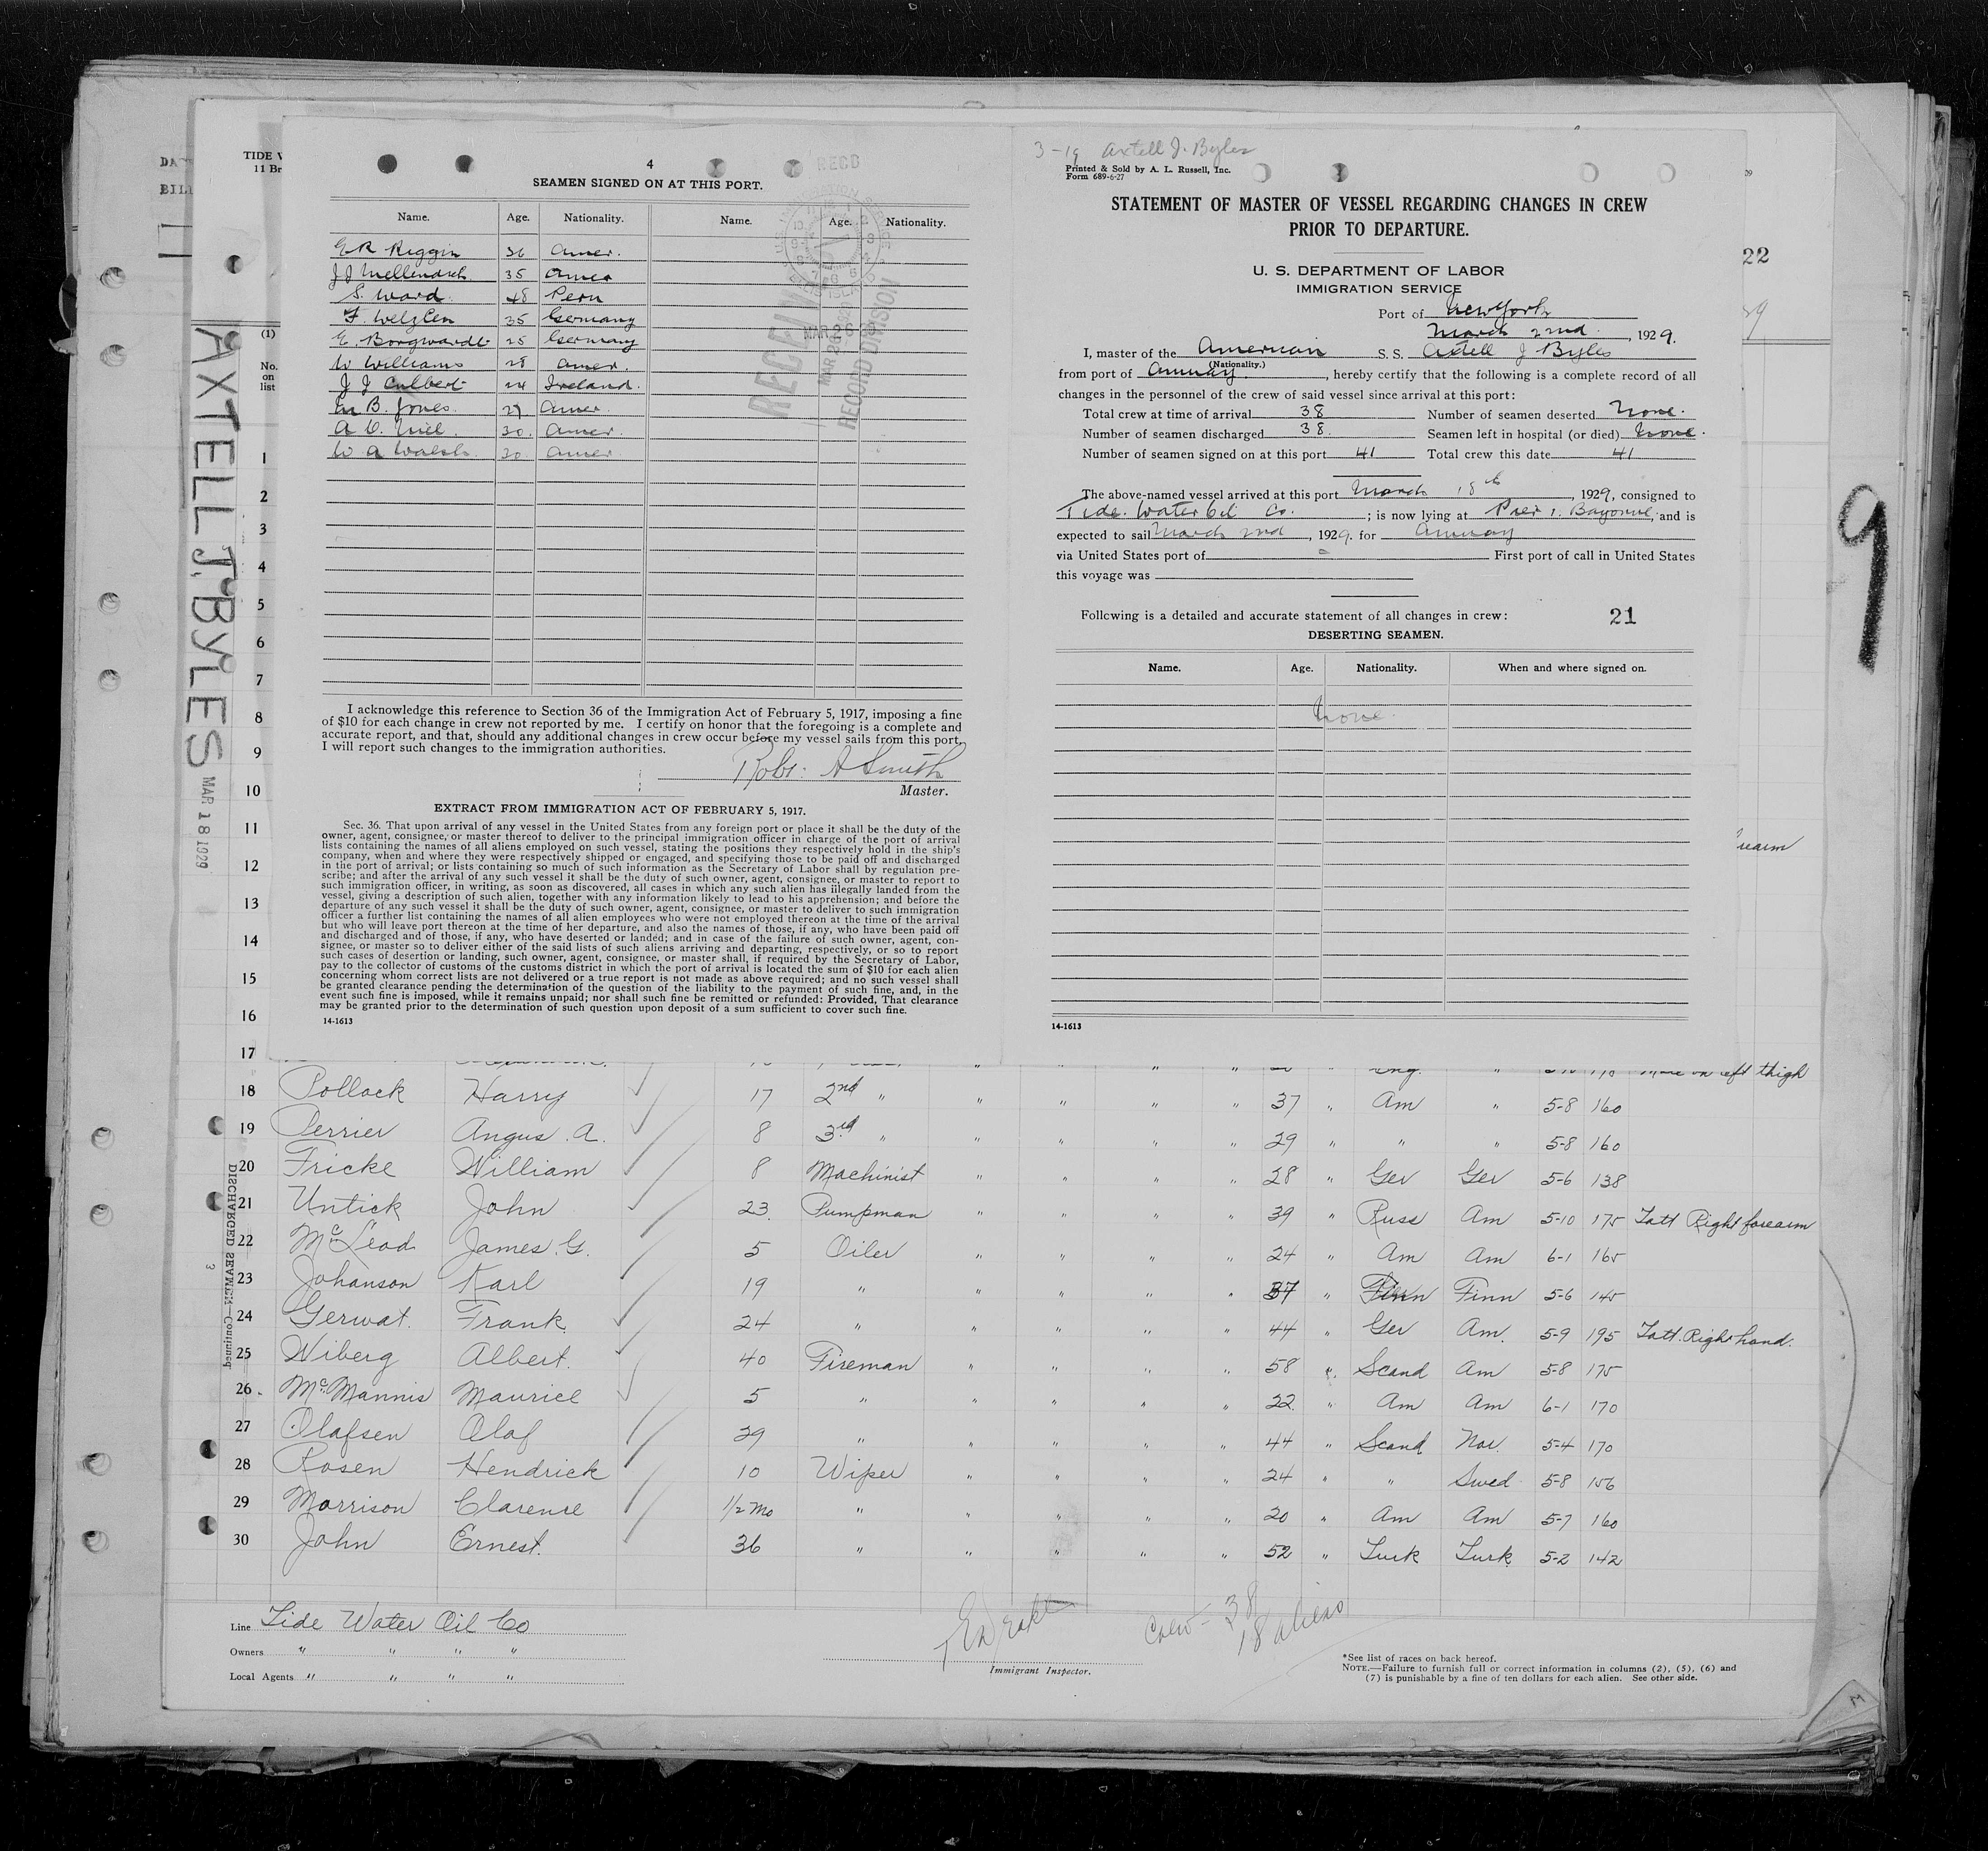 DA
BILL
TIDE W
11 Br
(1)
No.
on
list
AXTELL J. BYLES
MAR 18 1929
4
SEAMEN SIGNED ON AT THIS PORT.
Name. Age. Nationality. Name. Age. Nationality.
E R Riggin 36 Amer.
J J 35 Amer
S. Ward. 48 Peru
F. Welzlen 35 Germany
E Borgwardt 25 Germany
W Williams 28 Amer.
J J Culbert 24 Ireland.
B. Jones. 29 Amer.
A C. 30. Amer.
W A Walsh. 30 Amer.
RECD
RECEIVED
MAR 26
RECORD DIVISION
I acknowledge this reference to Section 36 of the Immigration Act of February 5, 1917, imposing a fine
of $10 for each change in crew not reported by me. I certify on honor that the foregoing is a complete and
accurate report, and that, should any additional changes in crew occur before my vessel sails from this port,
I will report such changes to the immigration authorities.
Robt. A Smith
Master.
EXTRACT FROM IMMIGRATION ACT OF FEBRUARY 5, 1917.
Sec. 36. That upon arrival of any vessel in the United States from any foreign port or place it shall be the duty of the
owner, agent, consignee, or master thereof to deliver to the principal immigration officer in charge of the port of arrival
lists containing the names of all aliens employed on such vessel, stating the positions they respectively hold in the ship's
company, when and where they were respectively shipped or engaged, and specifying those to be paid off and discharged
in the port of arrival; or lists containing so much of such information as the Secretary of Labor shall by regulation pre-
scribe; and after the arrival of any such vessel it shall be the duty of such owner, agent, consignee, or master to report to
such immigration officer, in writing, as soon as discovered, all cases in which any such alien has illegally landed from the
vessel, giving a description of such alien, together with any information likely to lead to his apprehension; and before the
departure of any such vessel it shall be the duty of such owner, agent, consignee, or master to deliver to such immigration
officer a further list containing the names of all alien employees who were not employed thereon at the time of the arrival
but who will leave port thereon at the time of her departure, and also the names of those, if any, who have been paid off
and discharged and of those, if any, who have deserted or landed; and in case of the failure of such owner, agent, con-
signee, or master so to deliver either of the said lists of such aliens arriving and departing, respectively, or so to report
such cases of desertion or landing, such owner, agent, consignee, or master shall, if required by the Secretary of Labor,
pay to the collector of customs of the customs district in which the port of arrival is located the sum of $10 for each alien
concerning whom correct lists are not delivered or a true report is not made as above required; and no such vessel shall
be granted clearance pending the determination of the question of the liability to the payment of such fine, and, in the
event such fine is imposed, while it remains unpaid; nor shall such fine be remitted or refunded: Provided, That clearance
may be granted prior to the determination of such question upon deposit of a sum sufficient to cover such fine.
14-1613
3-19 Axtell J. Byles
Printed & Sold by A. L. Russell, Inc.
Form 689-6-27
STATEMENT OF MASTER OF VESSEL REGARDING CHANGES IN CREW
PRIOR TO DEPARTURE.
U. S. DEPARTMENT OF LABOR
IMMIGRATION SERVICE
Port of New York
March 22nd, 1929.
I, master of the American S. S. Axtell J Byles
(Nationality.)
from port of Amuay., hereby certify that the following is a complete record of all
changes in the personnel of the crew of said vessel since arrival at this port:
Total crew at time of arrival 38 Number of seamen deserted None.
Number of seamen discharged 38. Seamen left in hospital (or died) None.
Number of seamen signed on at this port 41 Total crew this date 41
The above-named vessel arrived at this port March 18th, 1929, consigned to
Tide Water Oil Co.; is now lying at Pier 1. Bayonne, and is
expected to sail March 2nd, 1929. for Amuay
via United States port of - First port of call in United States
this voyage was
Following is a detailed and accurate statement of all changes in crew: 21
DESERTING SEAMEN.
Name. Age. Nationality. When and where signed on.
None
14-1613
22
9
rearm
1
2
3
4
5
6
7
8
9
10
11
12
13
14
15
16
17 on left thigh
18 Pollock Harry 17 2nd " " " " " 37 " Am " 5-8 160
19 Perrier Angus. A. 8 3rd " " " " " 29 " " " 5-8 160
20 Fricke William 8 Machinist " " " " 28 " Ger Ger 5-6 138
21 Untick John 23. Pumpman " " " " 39 " Russ Am 5-10 175 Tatt Right forearm
22 McLeod James. G. 5 Oiler " " " " 24 " Am Am 6-1 165
23 Johanson Karl 19 " " " " " 37 " Finn Finn 5-6 145
24 Gerwat. Frank. 24 " " " " " 44 " Ger Am. 5-9 195 Tatt. Right hand.
25 Wiberg Albert. 40 Fireman " " " " 58 " Scand Am 5-8 175
26 McMannis Maurice 5 " " " " " 22 " Am Am 6-1 170
27 Olafsen Olaf 29 " " " " " 44 " Scand Nor. 5-4 170
28 Rosen Hendrick 10 Wiper " " " " 24 " " Swed 5-8 156
29 Morrison Clarence 1/2 Mo " " " " " 20 " Am Am 5-7 160
30 John Ernest. 36 " " " " " 52 " Turk Turk 5-2 142
DISCHARGED SEAMEN—Continued.
3
Line Tide Water Oil Co
Owners " " " "
Local Agents " " " "
Immigrant Inspector.
Crew - 38
18 aliens
*See list of races on back hereof.
NOTE.—Failure to furnish full or correct information in columns (2), (5), (6) and
(7) is punishable by a fine of ten dollars for each alien. See other side.